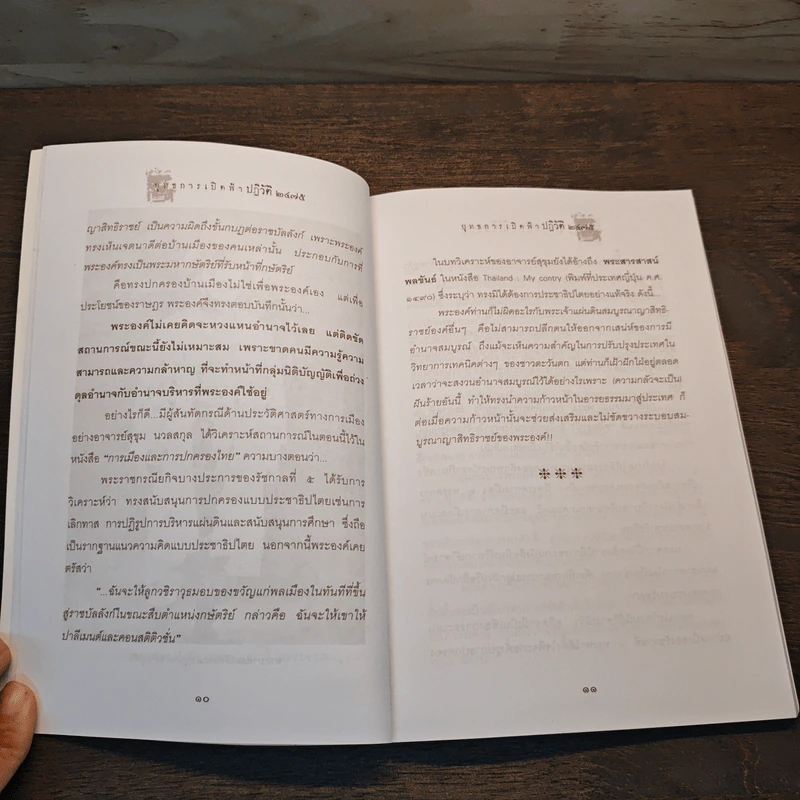 ยุทธการเปิดฟ้า ปฏิวัติ ๒๔๗๕
ญาสิทธิราชย์ เป็นความผิดถึงขั้นกบฏต่อราชบัลลังก์ เพราะพระองค์
ทรงเห็นเจตนาดีต่อบ้านเมืองของคนเหล่านั้น ประกอบกับการที่
พระองค์ทรงเป็นพระมหากษัตริย์ที่รับหน้าที่กษัตริย์
คือทรงปกครองบ้านเมืองไม่ใช่เพื่อพระองค์เอง แต่เพื่อ
ประโยชน์ของราษฎร พระองค์จึงทรงตอบบันทึกนั้นว่า...
พระองค์ไม่เคยคิดจะหวงแหนอำนาจไว้เลย แต่ติดขัด
สถานการณ์ขณะนี้ยังไม่เหมาะสม เพราะขาดคนมีความรู้ความ
สามารถและความกล้าหาญ ที่จะทำหน้าที่กลุ่มนิติบัญญัติเพื่อถ่วง
ดุลอำนาจกับอำนาจบริหารที่พระองค์ใช้อยู่
อย่างไรก็ดี...มีผู้สันทัดกรณีด้านประวัติศาสตร์ทางการเมือง
อย่างอาจารย์สุขุม นวลสกุล ได้วิเคราะห์สถานการณ์ในตอนนี้ไว้ใน
หนังสือ “การเมืองและการปกครองไทย” ความบางตอนว่า...
พระราชกรณียกิจบางประการของรัชกาลที่ ๕ ได้รับการ
วิเคราะห์ว่า ทรงสนับสนุนการปกครองแบบประชาธิปไตยเช่นการ
เลิกทาส การปฏิรูปการบริหารแผ่นดินและสนับสนุนการศึกษา ซึ่งถือ
เป็นรากฐานแนวความคิดแบบประชาธิปไตย นอกจากนี้พระองค์เคย
ตรัสว่า
“...ฉันจะให้ลูกวชิราวุธมอบของขวัญแก่พลเมืองในทันทีที่ขึ้น
สู่ราชบัลลังก์ในขณะสืบตำแหน่งกษัตริย์ กล่าวคือ ฉันจะให้เขาให้
ปาลีเมนต์และคอนสติติวชั่น”
๑๐
ยุทธการเปิดฟ้า ปฏิวัติ ๒๔๗๕
ในบทวิเคราะห์ของอาจารย์สุขุมยังได้อ้างถึง พระสารสาสน์
พลขันธ์ ในหนังสือ Thailand : My contry (พิมพ์ที่ประเทศญี่ปุ่น ค.ศ.
๑๙๔๐) ซึ่งระบุว่า ทรงมิได้ต้องการประชาธิปไตยอย่างแท้จริง ดังนี้...
พระองค์ท่านก็ไม่ผิดอะไรกับพระเจ้าแผ่นดินสมบูรณาญาสิทธิ-
ราชย์องค์อื่นๆ คือไม่สามารถปลีกตนให้ออกจากเสน่ห์ของการมี
อำนาจสมบูรณ์ ถึงแม้จะเห็นความสำคัญในการปรับปรุงประเทศใน
วิทยาการเทคนิคต่างๆ ของชาวตะวันตก แต่ท่านก็เฝ้าฝักใฝ่อยู่ตลอด
เวลาว่าจะสงวนอำนาจสมบูรณ์ไว้ได้อย่างไรเพราะ (ความกลัวจะเป็น)
ฝันร้ายอันนี้ ทำให้ทรงนำความก้าวหน้าในอารยธรรมมาสู่ประเทศ ก็
ต่อเมื่อความก้าวหน้านั้นจะช่วยส่งเสริมและไม่ขัดขวางระบอบสม-
บูรณาญาสิทธิราชย์ของพระองค์!!
๑๑